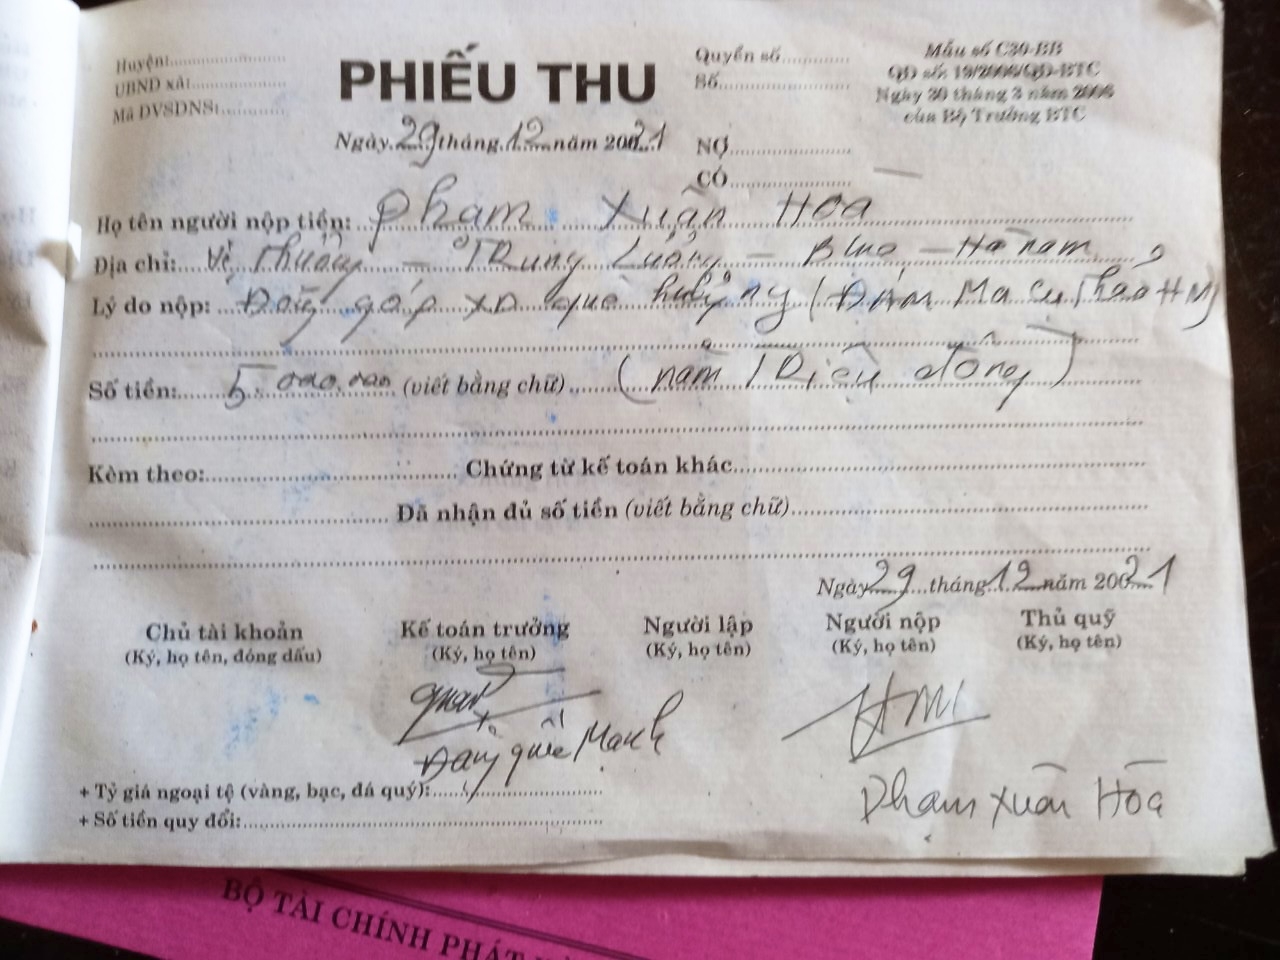 Huyện:....................
UBND xã:.................
Mã DVSDNS:............
PHIẾU THU
Ngày 29 tháng 12 năm 20021
Quyển số............
Số....................
NỢ....................
CÓ....................
Mẫu số C30-BB
QĐ số: 19/2006/QĐ-BTC
Ngày 30 tháng 3 năm 2006
của Bộ Trưởng BTC
Họ tên người nộp tiền: Phạm Xuân Hòa
Địa chỉ: Thượng - Trung Lương - BLục - Hà nam
Lý do nộp: Đóng góp XD quê hương (ĐÁM Ma cụ Thảo HM)
Số tiền: 5.000.000 (viết bằng chữ) (năm Triệu đồng)
Kèm theo:.................... Chứng từ kế toán khác....................
.................... Đã nhận đủ số tiền (viết bằng chữ)....................
Ngày 29 tháng 12 năm 20021
Chủ tài khoản
(Ký, họ tên, đóng dấu)
Kế toán trưởng
(Ký, họ tên)
Đặng quốc Mạnh
Người lập
(Ký, họ tên)
Người nộp
(Ký, họ tên)
Phạm Xuân Hòa
Thủ quỹ
(Ký, họ tên)
+ Tỷ giá ngoại tệ (vàng, bạc, đá quý):....................
+ Số tiền quy đổi:....................
BỘ TÀI CHÍNH PHÁT